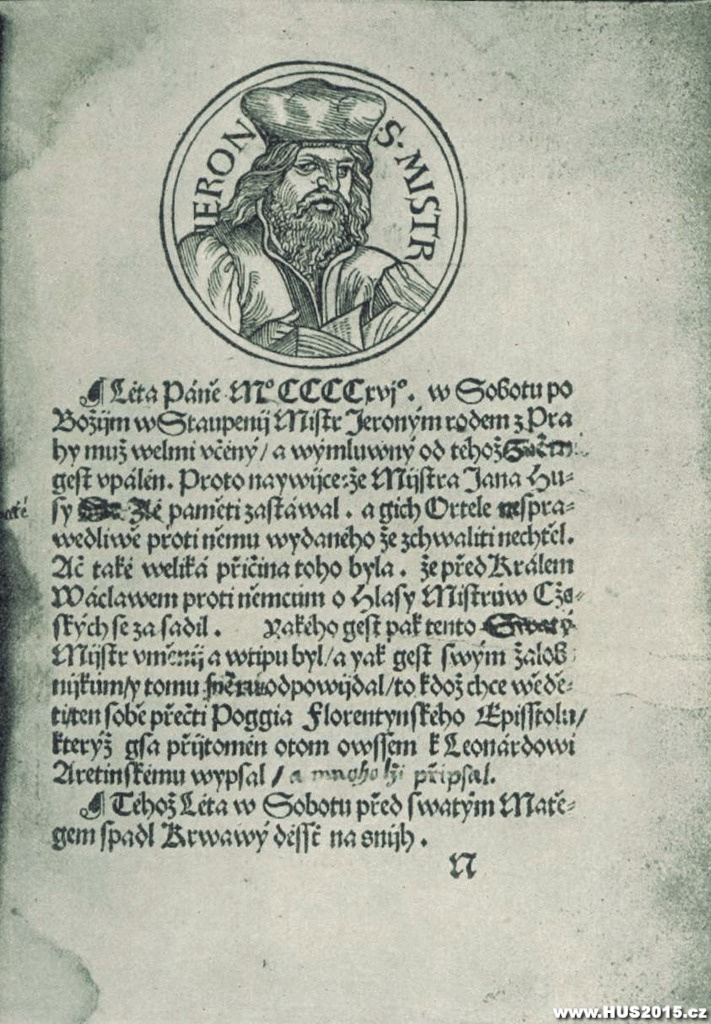 IERON S·MISTR
¶ Léta Páně Mº CCCCxvjº. w Sobotu po
Božijm wStaupenij Mistr Jeroným rodem z Pra
hy muž welmi včený / a wýmluwný od téhož
gest vpálen. Proto naywijce: že Mijstra Jana Hu-
sy paměti zastáwal. a gich Ortele nespra-
wedliwě proti němu wydaného že zchwaliti nechtěl.
Ač také weliká přičina toho byla. že před Králem
Wáclawem proti němcům o Hlasy Mistrůw Cže-
ských se za sadil. Yakého gest pak tento Swatý
Mijstr vměnij a wtipu byl / a yak gest swým žalob
nijkům / y tomu odpowijdal / to kdož chce wědě-
ti / ten sobě přečti Poggia Florentynského Episstolu /
kterýž gsa přijtomen otom owssem k Leonárdowi
Aretinskému wypsal / a mnoho lži připsal.
¶ Téhož Léta w Sobotu před swatým Matě-
gem spadl Krwawý désst na snijh.
N
www.HUS2015.cz